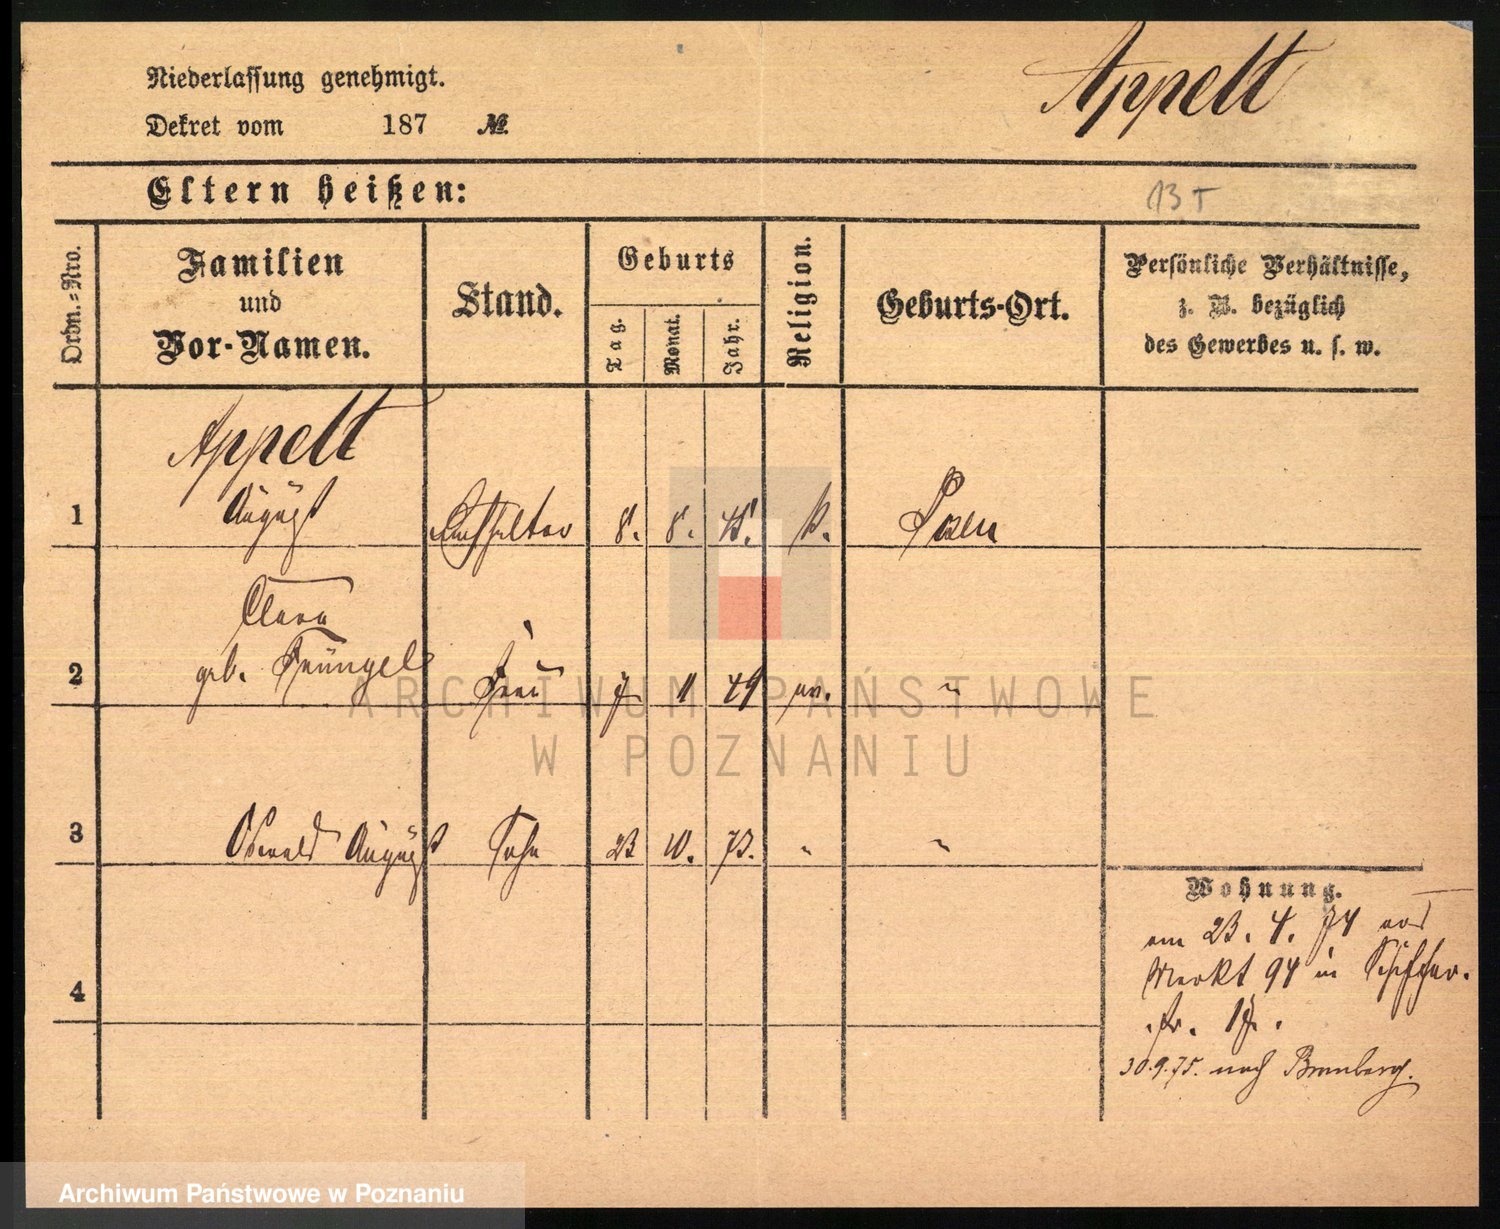 Appelt
Niederlassung genehmigt.
Dekret vom 187 №
Eltern heißen:
13 T
Ordn.-Nro.
Familien
und
Vor-Namen.
Stand.
Geburts
Tag.
Monat.
Jahr.
Religion.
Geburts-Ort.
Persönliche Verhältnisse,
z. B. bezüglich
des Gewerbes u. s. w.
Appelt
1 August 8. 8. 48. k. Posen
Clara
2 geb. Trüngel Frau 7 11 49 ev. "
3 Oswald August Sohn 23 10. 73. " "
4
Wohnung.
am 23. 4. 74 von
Markt 94 in Schiffer-
str. 17.
30.9.75. nach Bromberg.
ARCHIWUM PAŃSTWOWE
W POZNANIU
Archiwum Państwowe w Poznaniu